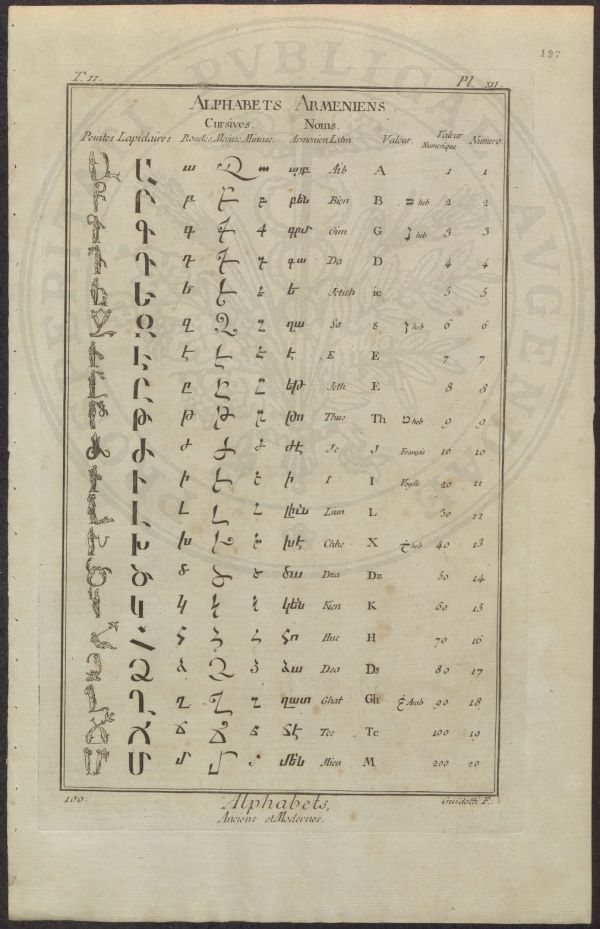 187
T. II. Pl. XII.
ALPHABETS ARMENIENS.
Cursives. Noms.
Peintes Lapidaires Rondes Moïenne Minuse. Armenien Latin Valeur. Valeur Numerique Numero
Ա ա այբ Aib A 1 1
Բ բ բեն Bien B ב heb 2 2
Գ գ գիմ Gim G ג heb 3 3
Դ դ դա Da D 4 4
Ե ե ե Jetsch ie 5 5
Զ զ զա Sa S ז heb 6 6
Է է է E E 7 7
Ը ը եթ Jeth E 8 8
Թ թ թո Thuo Th ט heb 9 9
Ժ ժ ժէ Je J François 10 10
Ի ի ի I I Voyelle 20 11
Լ լ լիւն Liun L 30 12
Խ խ խէ Chhe X خ heb 40 13
Ծ ծ ծա Dza Dz 50 14
Կ կ կեն Kien K 60 15
Հ հ հո Huo H 70 16
Ձ ձ ձա Dsa Ds 80 17
Ղ ղ ղատ Ghat Gh غ Arab 90 18
Ճ ճ ճէ Tce Tc 100 19
Մ մ մեն Mien M 200 20
100. Alphabets, Guidotti F.
Anciens et Modernes.